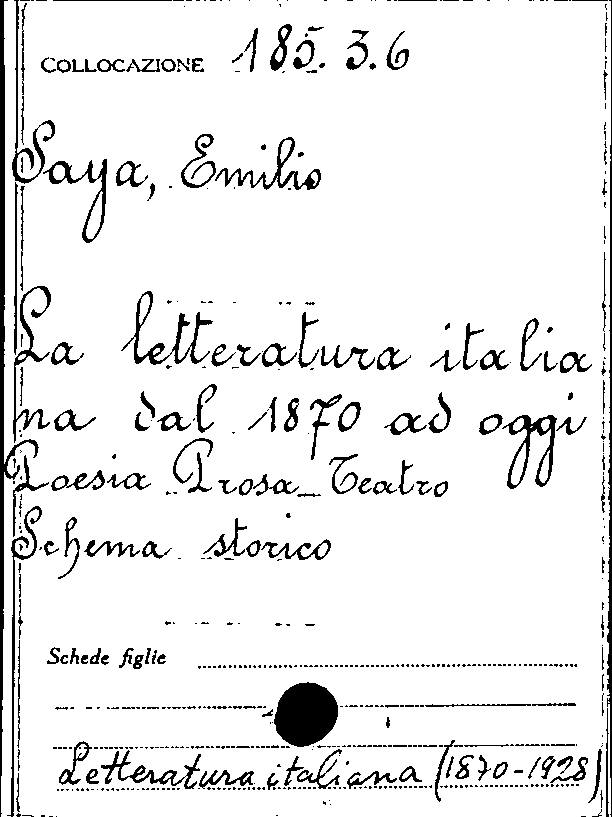 COLLOCAZIONE 185.3.6
Saya, Emilio
La letteratura italia
na dal 1870 ad oggi
Poesia _ Prosa _ Teatro
Schema storico
Schede figlie
Letteratura italiana (1870-1928)